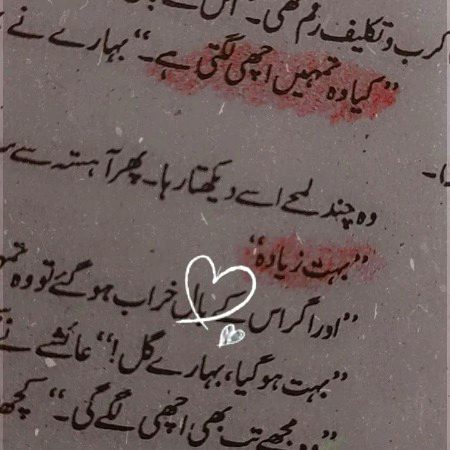 کرب و تکلیف رقم تھی۔ اس کے
"کیا وہ تمہیں اچھی لگتی ہے۔" بہارے نے
وہ چند لمحے اسے دیکھتا رہا۔ پھر آہستہ سے
"بہت زیادہ"
"اور اگر اس کے بال خراب ہو گئے تو وہ
"بہت ہو گیا، بہارے گل!" عائشے نے
"وہ مجھے تب بھی اچھی لگے گی۔" کچھ